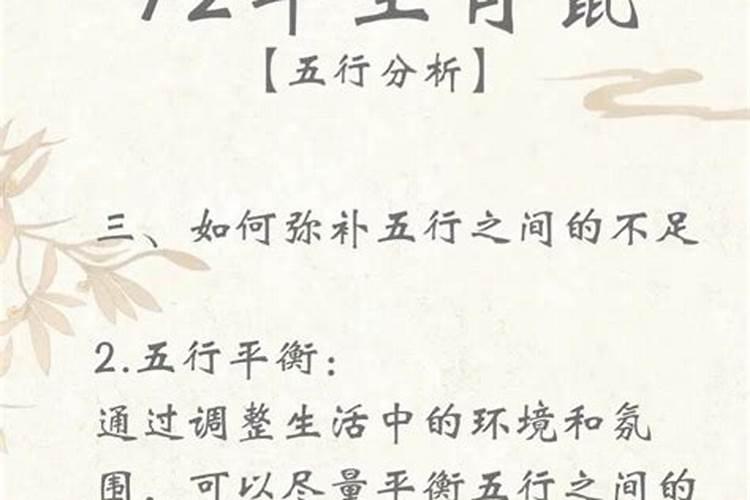 72年生肖鼠
【五行分析】
三、如何弥补五行之间的不足
2.五行平衡：
通过调整生活中的环境和氛
围，可以尽量平衡五行之间的